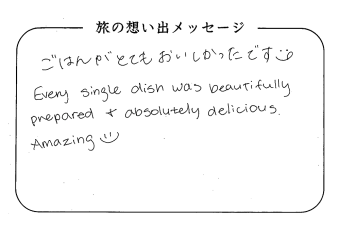 旅の想い出メッセージ
ごはんがとてもおいしかったです
Every single dish was beautifully
prepared + absolutely delicious.
Amazing